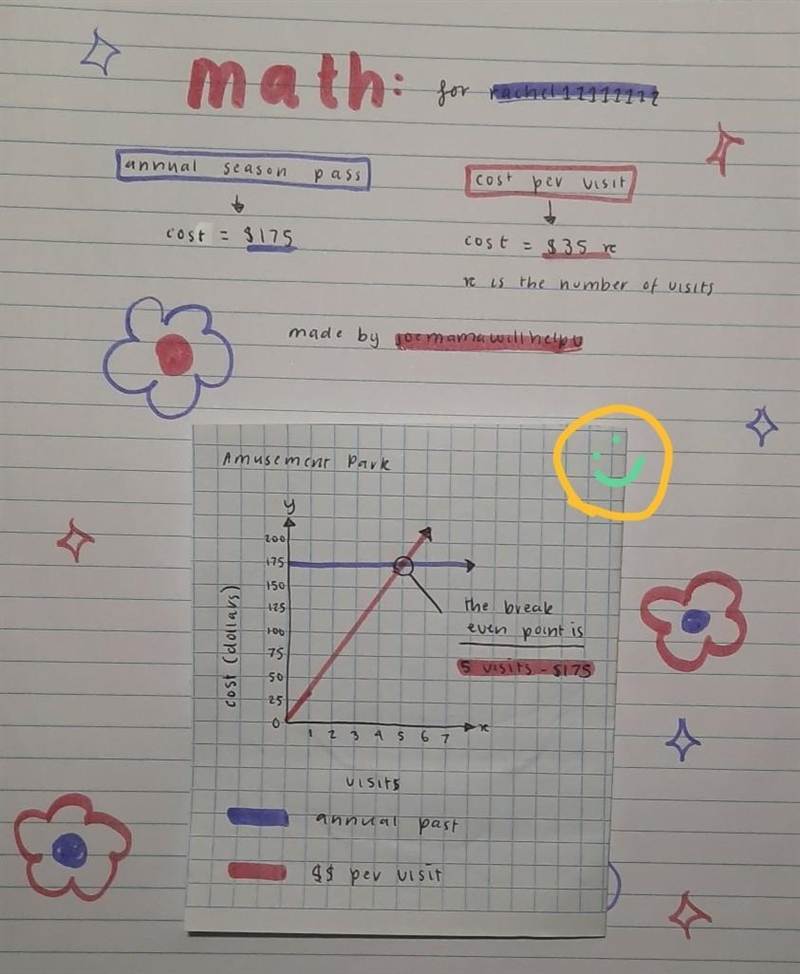 math: for rachel11111111
annual season pass
cost per visit
cost = $175
cost = $35 x
x is the number of visits
made by joemamawillhelpu
Amusement Park
y
200
175
150
125
100
75
50
25
0
cost (dollars)
the break
even point is
5 visits - $175
1 2 3 4 5 6 7
x
visits
annual past
$$ per visit